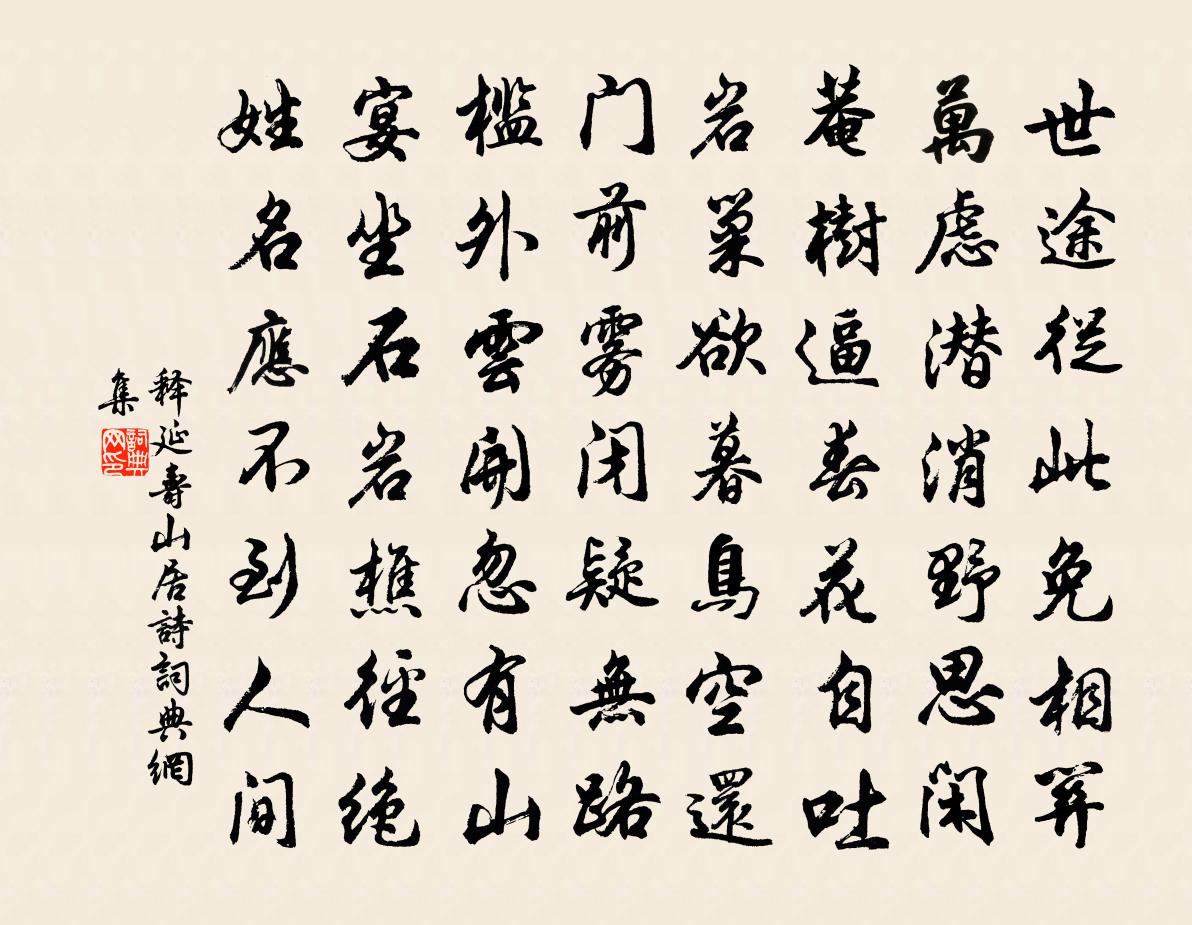 世途從此免相关
萬虑潜消野思闲
菴樹逼春花自吐
岩巢欲暮鳥空還
门前雾闭疑無路
檻外雲開忽有山
宴坐石岩樵徑绝
姓名應不到人间
释延壽山居詩詞典網
集
詞典
网印